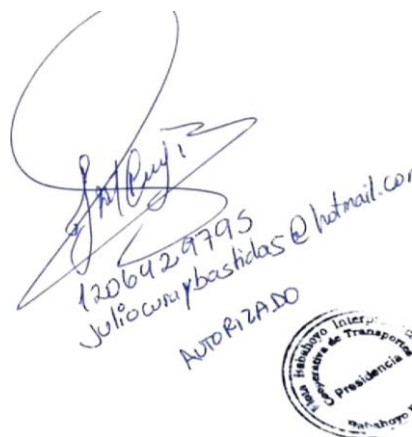 1206429795
juliocuruybastidas@hotmail.com
AUTORIZADO
Flota Babahoyo Interp
Cooperativa de Transportes
Presidencia
Babahoyo